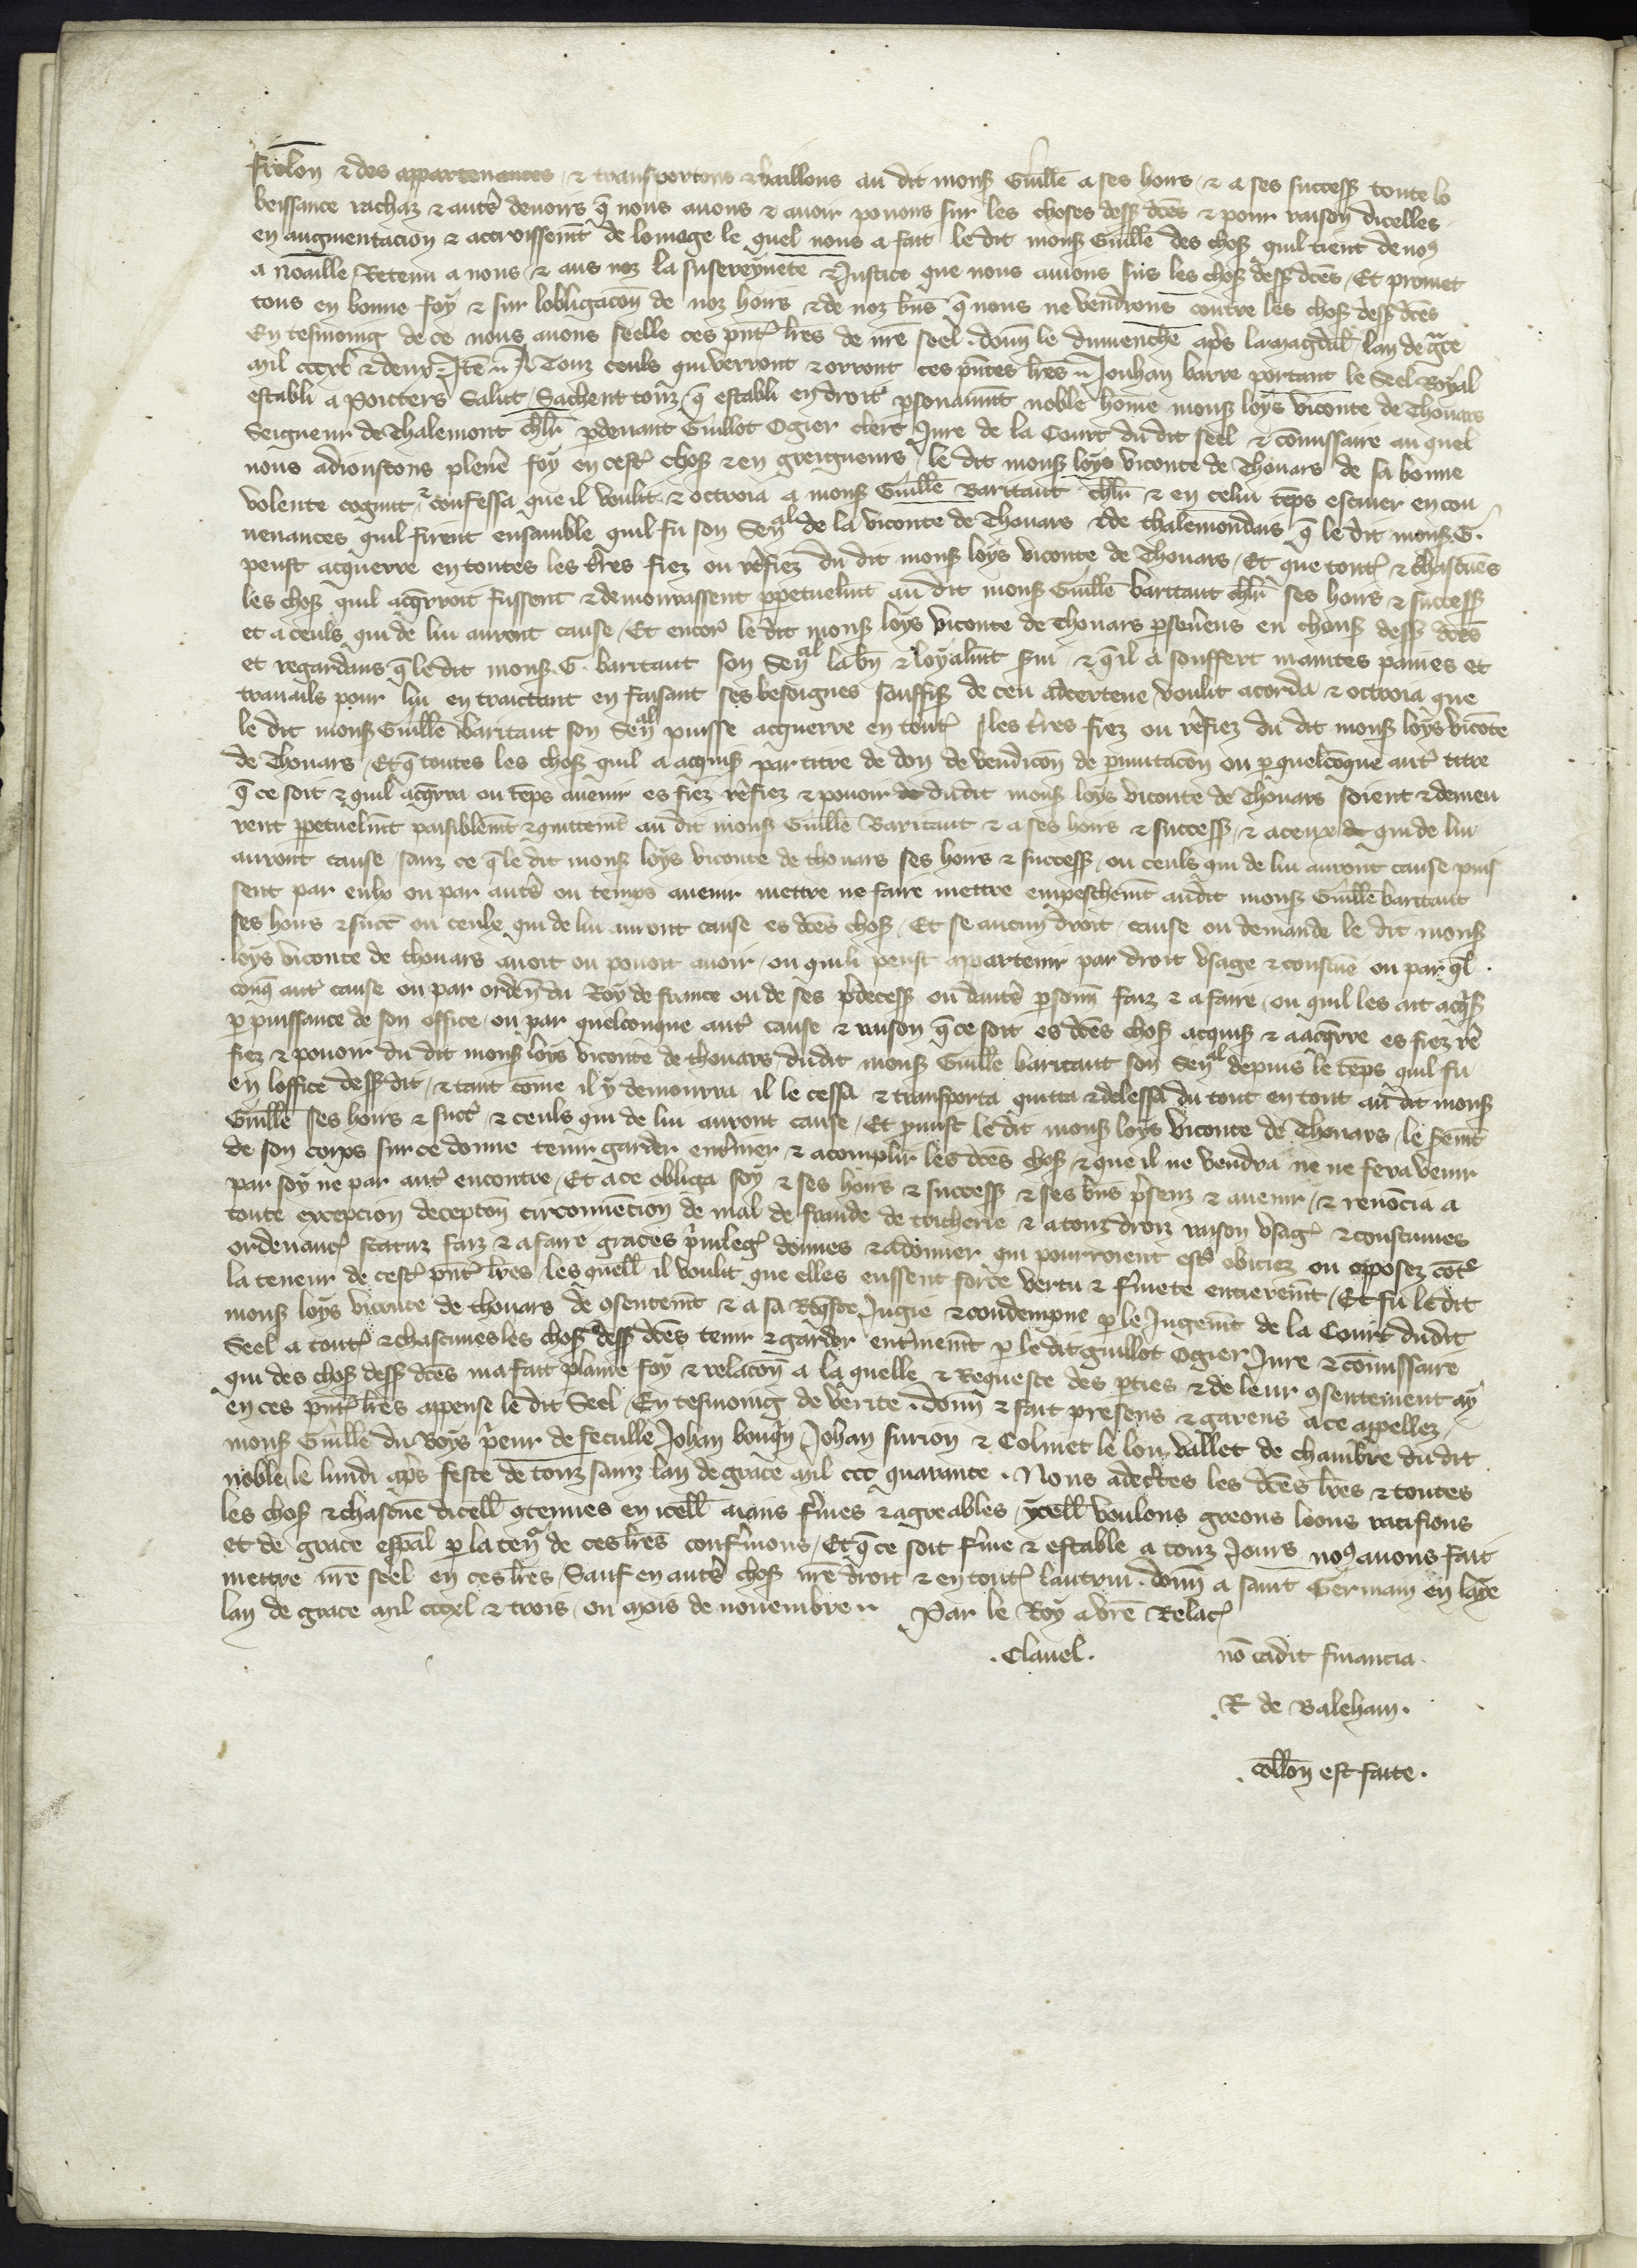 frelon & des appartenances, & transportons & baillons au dit mons Guille a ses hoirs, & a ses success toute lo
beissance rachaz & autres devoirs q̄ nous avons & avoir povons sur les choses dess dc̄es & pour raison dicelles
en augmentacion & accroissemt de lomage le quel nous a fait le dit mons Guille des chos quil tient de no9
a noaille, Retenu a nous, & aus noz la suserayneté & Justice que nous avions sus les chos dess dc̄es, Et promet
tons en bonne foy & sur lobligacon de noz hoirs & de noz bn̄s q̄ nous ne vendrons contre les chos dess dc̄es
En tesmoing de ce nous avons seelle ces pnt̄ lr̄es de nr̄e seel. donn le dimenche apr̄s la magdal lan de gr̄ce
mil cccxl & deux. Itē A Touz ceuls qui verront & orront ces pn̄tes lr̄es Jouhan barre portant le Seel Royal
establi a Poicters Salut, Sachent touz q̄ establi en droit p̄sonaumt noble home mons loys viconte de Thouars
Seigneur de Thalemont chlr̄ p̄devant Guillot Ogier clerc Jure de la Court du dit seel & cōmissaire au quel
nous adioustons plen̄e foy en cest chos & en greigneurs, le dit mons loys viconte de Thouars de sa bonne
volente cognut & confessa que il voulit & octroia a mons Guille Baritaut chlr̄ & en celui tēps escuier en cou
venances quil firent ensamble quil fu son Senal de la viconte de Thouars & de thalemondais q̄ le dit mons G.
peust acquerre en toutes les tr̄res fiez ou rēfiez du dit mons loys viconte de Thouars, Et que tout & chascunes
les chos quil acq̄rroit fussent & demourassent ppetuelmt au dit mons Guille baritaut chlr̄ ses hoirs & success
et a ceuls qui de lui auront cause, Et encor le dit mons loys viconte de Thouars p̄sev̄ens en chous dess dc̄es
et regardans q̄ le dit mons G. baritaut son Senal la bn̄ & loyalmt s̄vi, & q̄ il a souffert maintes paines et
travails pour lui en traictant en faisant ses besoignes souffis de ceu acertene, voulit acorda & octroia que
le dit mons Guille Baritaut son Senal puisse acquerre en tout les tr̄res fiez ou rēfiez du dit mons loys viconte
de Thouars, Et q̄ toutes les chos quil a acquis par titre de don de vendicon de p̄mutacon ou p̄ quelcōque aut̄ titre
q̄ ce soit & quil acq̄rra ou tēps avenir es fiez rēfiez & povoir dudit mons loys viconte de Thouars soient & demeu
rent ppetuelmt paisiblemt & quittemt au dit mons Guille Baritaut & a ses hoirs & success, & a ceux qui de lui
auront cause, sanz ce q̄ le dit mons loys viconte de thouars ses hoirs & success, ou ceuls qui de lui auront cause puis
sent par eulx ou par autr̄e ou temps avenir mettre ne faire mettre empeschemt au dit mons Guille baritaut
ses hoirs & succ ou ceulx qui de lui auront cause es dc̄es chos, Et se aucun droit, cause ou demande le dit mons
loys viconte de thouars avoit ou povoit avoir, ou quili peust apartenir par droit usage & coustume ou par q̄l
conq̄ aut̄ cause ou par orden du Roy de france ou de ses p̄decess ou dautr̄s p̄sonn faiz & a faire, ou quil les ait acq̄s
p̄ puissance de son office, ou par quelconque aut̄ cause & raison q̄ ce soit es dc̄es chos acquis & a acq̄rre es fiez rē
fiez & povoir du dit mons loys viconte de thouars dudit mons Guille baritaut son Senal depuis le tēps quil fu
en loffice dess dit, & tant come il y demourra il le cessa & transporta quitta & delessa du tout en tout au dit mons
Guille ses hoirs & succ̄ & ceuls qui de lui auront cause, Et p̄mist le dit mons loys viconte de Thouars, le s̄emt
de son corps sur ce donne tenir garder entr̄iner & acomplir les dc̄es chos & que il ne vendra ne ne fera venir
par soy ne par aut̄ encontre, Et a ce obliga soy & ses hoirs & success & ses bn̄s p̄senz & avenir, & renōcia a
toute excepcion deceptōn circonvēcion de mal de fraude de tricherie & a touz droiz raison usag & coustumes
ordenanc statuz faiz & a faire graces p̄vileg donnes & a donner qui pourroient estr̄ obiciez ou opposez cōt̄
la teneur de cest pnt̄ lr̄es, les quell il voulit que elles eussent force vertu & fermete entieremt, Et fu le dit
mons loys viconte de thouars de 9sentemt & a sa Req̄ste Jugie & condempne p̄ le Jugemt de la Court dudit
Seel a tout & chascunes les chos dess dc̄es tenir & garder entr̄inemt p̄ le dit guillot Ogier Jure & cōmissaire
qui des chos dess dc̄es ma fait plaine foy & relacon a la quelle & Requeste des p̄ties & de leur 9sentement ay
en ces pnt̄ lr̄es apense le dit Seel, En tesmoing de verite. donn & fait presens & garens a ce appellez,
mons Guille du Boys p̄eur de feculle Johan bouq̄n Johan surion & Colinet le lou vallet de chambre du dit
noble, le lundi apr̄s feste de touz sainz lan de grace mil ccc quarante. Nous adecertes les dc̄es lr̄es & toutes
les chos & chascune dicell 9tenues en icell aians fermes & agreables, ycell voulons greons loons ratifions
et de grace esp̄al p̄ la ten̄ de ces lr̄es conf̄mons, Et q̄ ce soit ferme & estable a touz jours no9 avons fait
mettre nr̄e seel en ces lr̄es, Sauf en autr̄s chos nr̄e droit & en tout lautrui. donn a saint Germain en laye
lan de grace mil cccxl & trois, ou mois de novembre. Par le Roy a vr̄e Relac
.Clavel. nō cadit financia.
.R de Baleham.
.collon est faite.